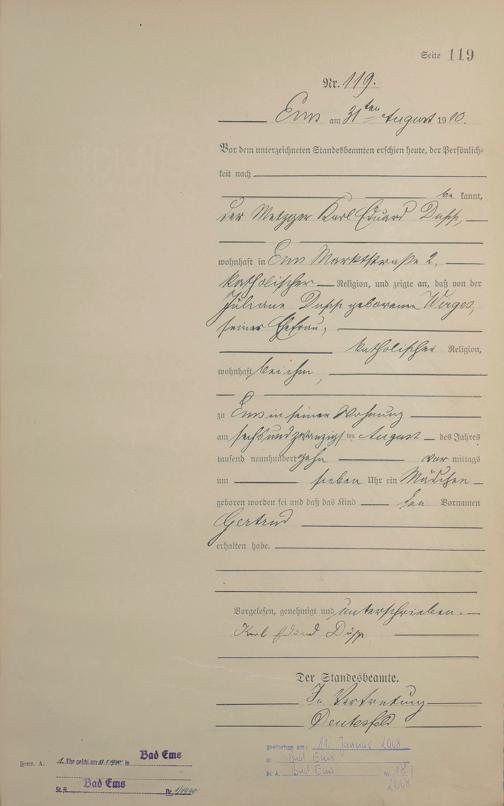 Seite 119
Nr. 119.
Ems am 31ten August 1910.
Vor dem unterzeichneten Standesbeamten erschien heute, der Persönlich-
keit nach
be kannt,
der Metzger Karl Eduard
wohnhaft in Ems Marktstraße 2,
katholischer Religion, und zeigte an, daß von der
Juliane geborenen Werges,
seiner Ehefrau,
katholischer Religion,
wohnhaft bei ihm,
zu Ems in seiner Wohnung
am sechsundzwanzigsten August des Jahres
tausend neunhundert zehn vor mittags
um sieben Uhr ein Mädchen
geboren worden sei und daß das Kind den Vornamen
Gertrud
erhalten habe.
Vorgelesen, genehmigt und unterschrieben.
Karl Eduard
Der Standesbeamte.
In Vertretung
1. Ehe geschl. am in Bad Ems
St. A. Bad Ems Nr. /1940
gestorben am: 11. Januar 2008
in Bad Ems
St. A. Bad Ems Nr.
2008